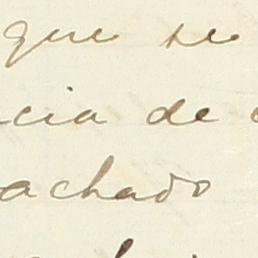 que se
cia de
achado